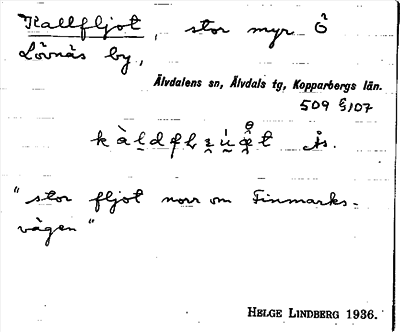 Kallfljot, stor myr Ö
Lövnäs by,
Älvdalens sn, Älvdals tg, Kopparbergs län.
509 §107
ſs.
"stor fljot norr om Finmarks-
vägen"
HELGE LINDBERG 1936.